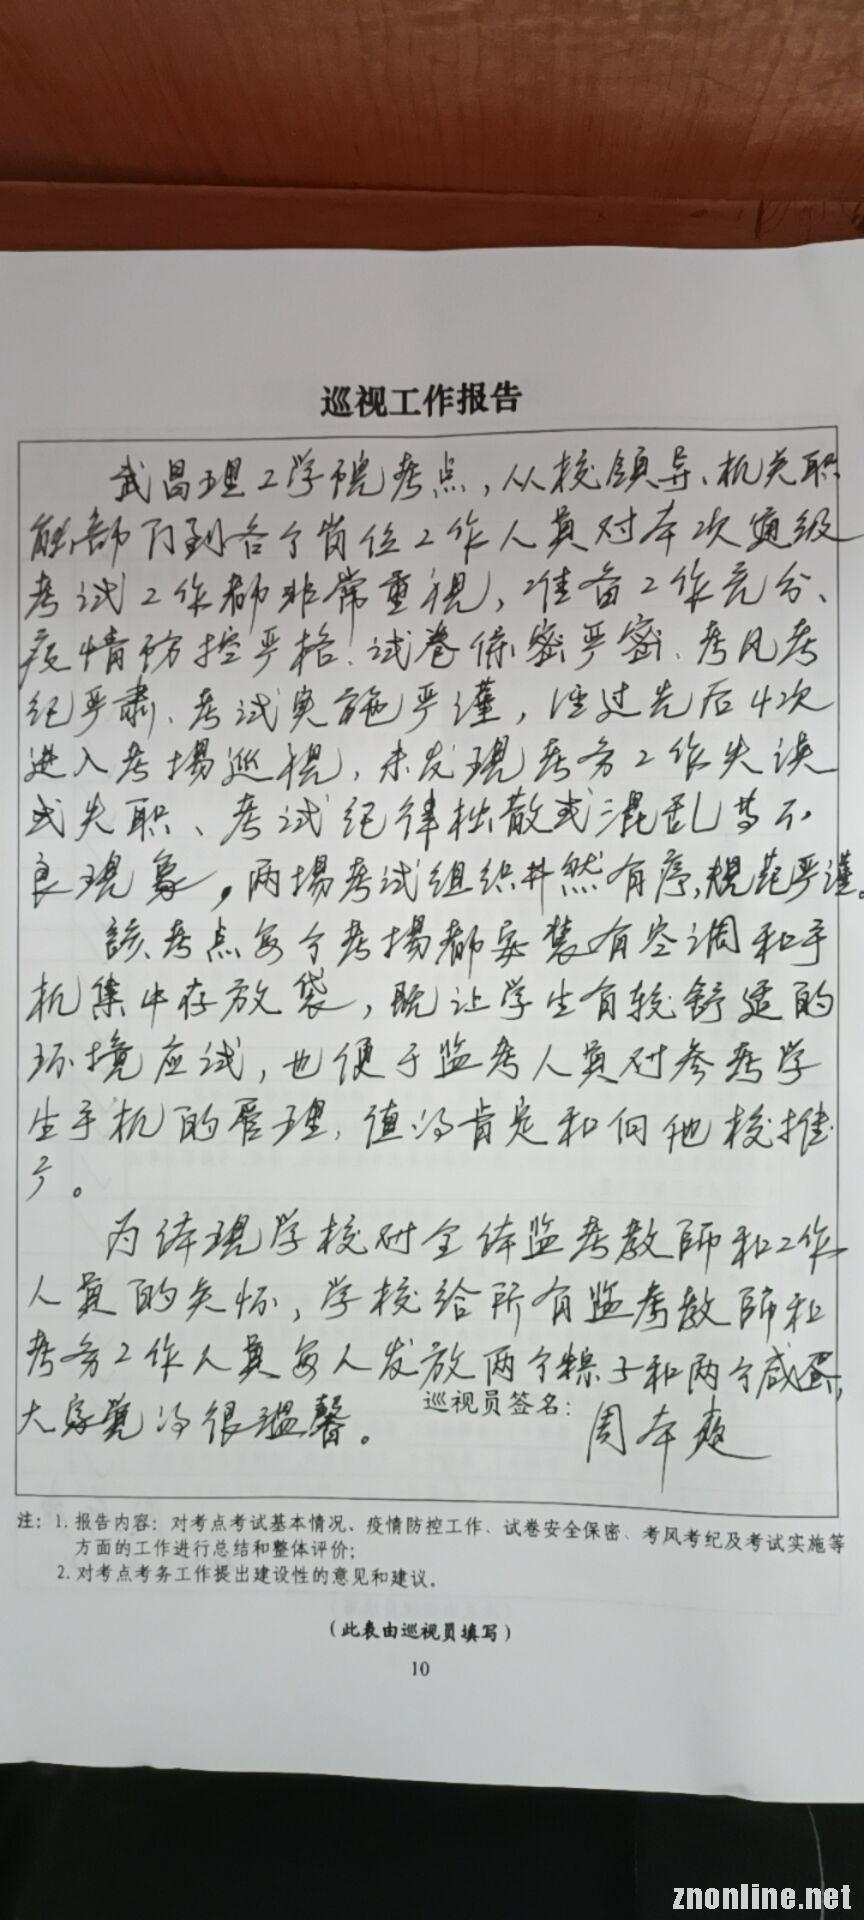 巡视工作报告
武昌理工学院考点，从校领导、机关职
能部门到各个岗位工作人员对本次四级
考试工作都非常重视，准备工作充分、
疫情防控严格、试卷保密严密、考风考
纪严肃、考试实施严谨，经过先后4次
进入考場巡视，未发现考务工作失误
或失职、考试纪律松散或混乱等不
良现象，两場考试组织井然有序，规范严谨。
該考点每个考場都安装有空调和手
机集中存放袋，既让学生有较舒适的
环境应试，也便于监考人员对参考学
生手机的管理，值得肯定和向他校推
广。
为体现学校对全体监考教师和工作
人员的关怀，学校给所有监考教师和
考务工作人员每人发放两个粽子和两个咸蛋，
大家觉得很温馨。
巡视员签名：
周本爽
注：1. 报告内容：对考点考试基本情况、疫情防控工作、试卷安全保密、考风考纪及考试实施等
方面的工作进行总结和整体评价；
2. 对考点考务工作提出建设性的意见和建议。
（此表由巡视员填写）
10
znonline.net